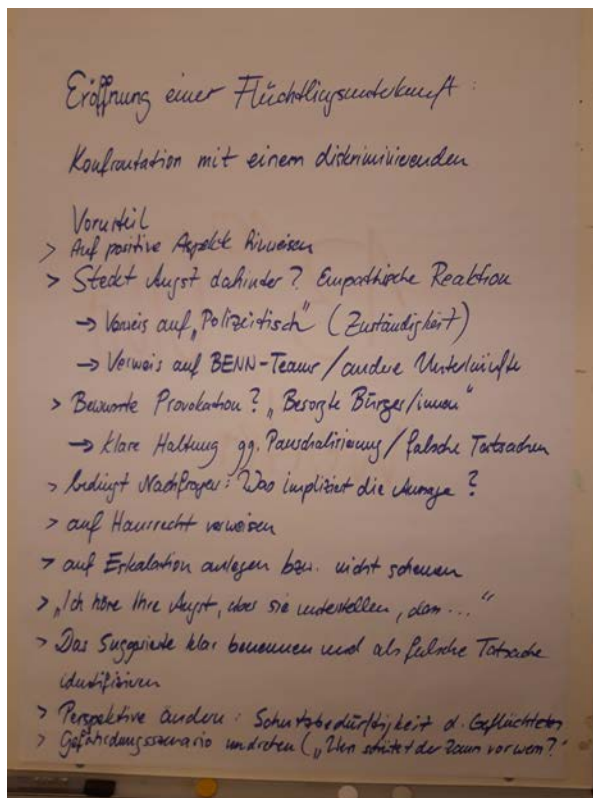 Eröffnung einer Flüchtlingsunterkunft:
Konfrontation mit einem diskriminierenden
Vorurteil
> Auf positive Aspekte hinweisen
> Steckt Angst dahinter? Empathische Reaktion
→ Verweis auf „Polizeitisch" (Zuständigkeit)
→ Verweis auf BENN-Teams/andere Unterkünfte
> Bewusste Provokation? „Besorgte Bürger/innen"
→ klare Haltung gg. Pauschalisierung/falsche Tatsachen
> bedingt Nachfragen: Was impliziert die Aussage?
> auf Hausrecht verweisen
> auf Eskalation anlegen bzw. nicht scheuen
> „Ich höre Ihre Angst, aber sie unterstellen, dass..."
> Das Suggerierte klar benennen und als falsche Tatsache
identifizieren
> Perspektive ändern: Schutzbedürftigkeit d. Geflüchteten
> Gefährdungsszenario umdrehen („Wen schützt der Zaun vor wem?"